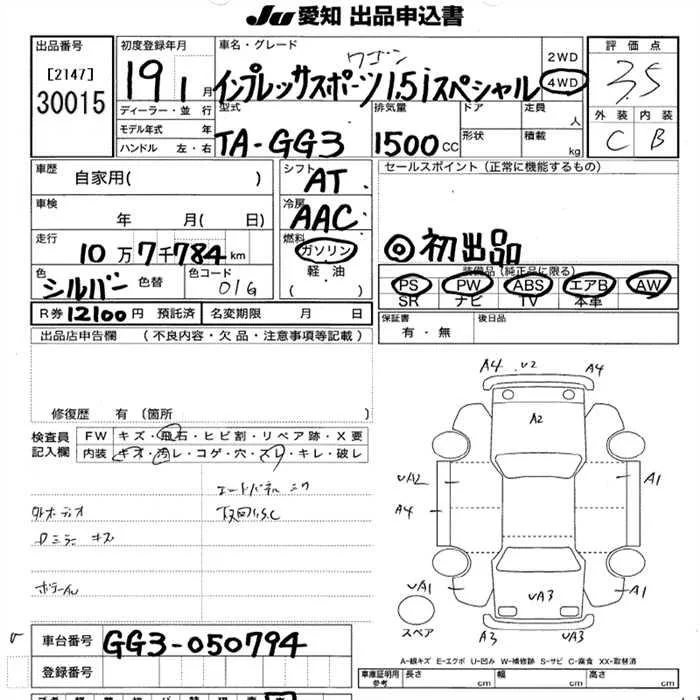 Ju 愛知 出品申込書
出品番号
[2147]
30015
初度登録年月
19 1 月
ディーラー・並 行
モデル年式 年
ハンドル 左・右
車名・グレード
ワゴン
インプレッサスポーツ1.5iスペシャル
2WD
4WD
型式
TA-GG3
排気量
1500 CC
ドア
形状
定員
人
積載
kg
評価点
3.5
外装 内装
C B
車歴
自家用( )
シフト
AT
車検
年 月( 日)
冷房
AAC
走行
10万7千784km
燃料
ガソリン
軽・油
( ・ )
色
シルバー
色替
色コード
01G
R券 12100円 預託済
名変期限 月 日
セールスポイント(正常に機能するもの)
◎初出品
装備品(純正品に限る)
PS PW ABS エアB AW
SR ナビ TV 本革
保証書
有・無
後日品
出品店申告欄 (不良内容・欠品・注意事項等記載)
修復歴 有(箇所 )
検査員記入欄
FW キズ・飛石・ヒビ割・リペア跡・X要
内装 キズ・汚レ・コゲ・穴・スレ・キレ・破レ
キズ
A4 U2 A4
A2
UA2
A1
A4
UA1
A1
UA3
A3 UA3
スペア
A-線キズ E-エクボ U-凹み W-補修跡 S-サビ C-腐食 XX-取替済
車台番号
GG3-050794
登録番号
車庫証明用参考
長さ cm
幅 cm
高さ cm